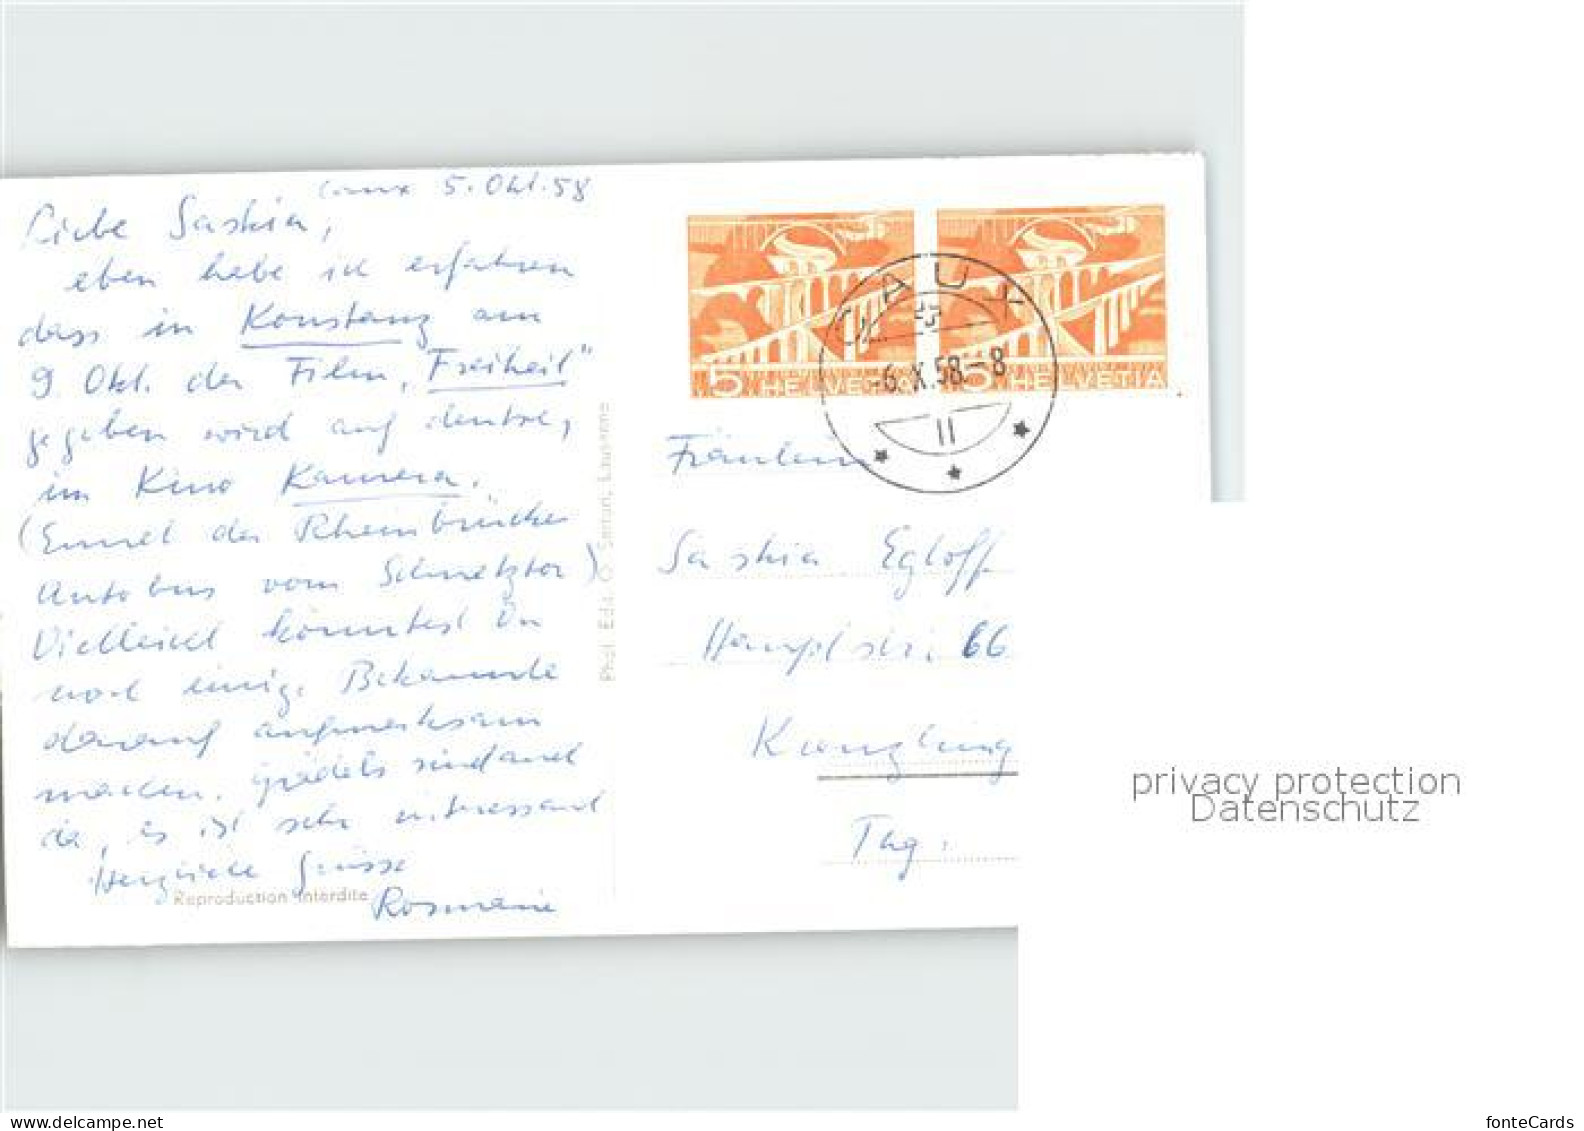 Caux 5. Okt. 58
Liebe Saskia,
eben habe ich erfahren
dass in Konstanz am
9. Okt. der Film „Freiheit"
gegeben wird auf deutsch,
im Kino Kamera.
(Ennet der Rheinbrücke
Autobus vom Schnetztor)
Vielleicht könntest Du
noch einige Bekannte
darauf aufmerksam
machen. Grädels sind auch
da, es ist sehr interessant
Herzliche Grüsse
Rosmarie
Reproduction interdite
Lausanne
HELVETIA
5 HELVETIA
CAUX
-6.X.58-8
II
Fräulein
Saskia Egloff
Hauptstr. 66
Kreuzling
Thg.
privacy protection
Datenschutz
www.delcampe.net
fonteCards